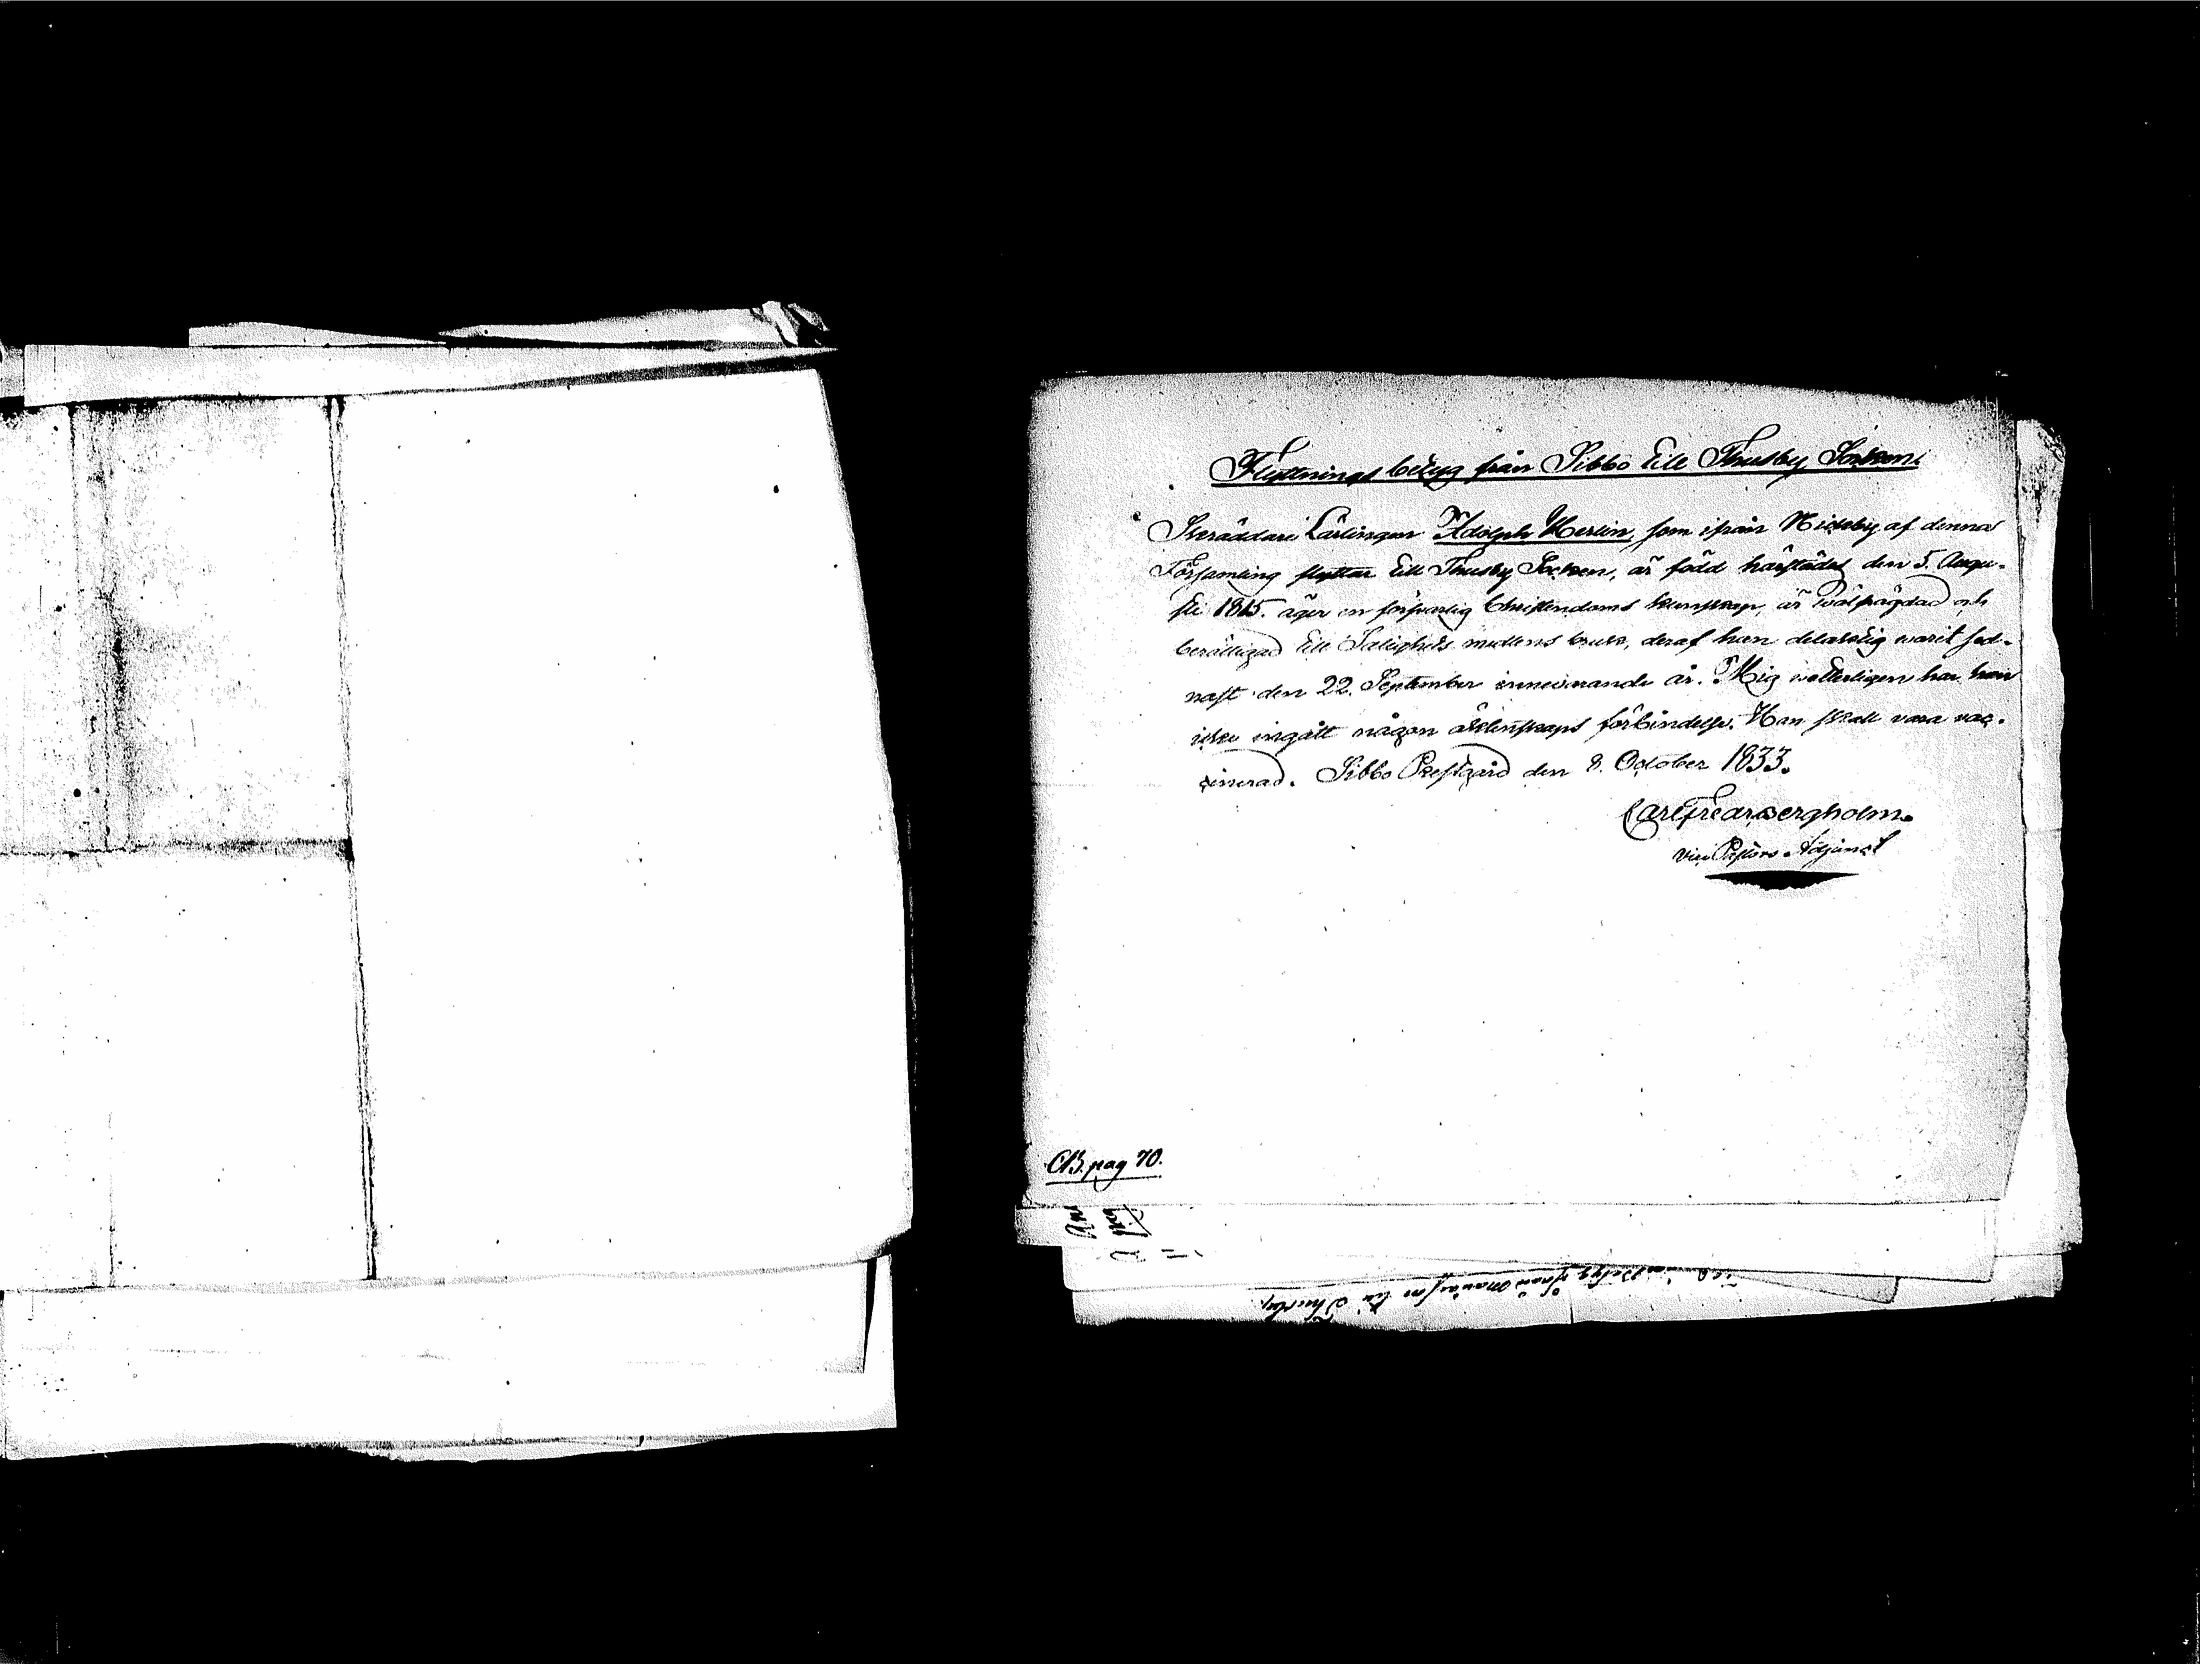 Flyttnings betyg från Sibbo till Thusby Socken.
Skräddare Lärlingen Adolph Merlin, som ifrån Nickby af denna
Församling flyttar till Thusby Socken, är född härstädes den 5. Augu-
sti 1815. äger en försvarlig Christendoms kunskap, är välfrägdad och
berättigad till Salighets medlens bruk, deraf han delaktig warit sed-
nast den 22. September innewarande år. Mig wetterligen har han
icke ingått någon äktenskaps förbindelse. Han skall vara vac-
cinerad. Sibbo Prestgård den 8. October 1833.
Carl Fredr Bergholm.
Vice Pastors Adjunct
CB. pag 70.
betyg från till Thusby.